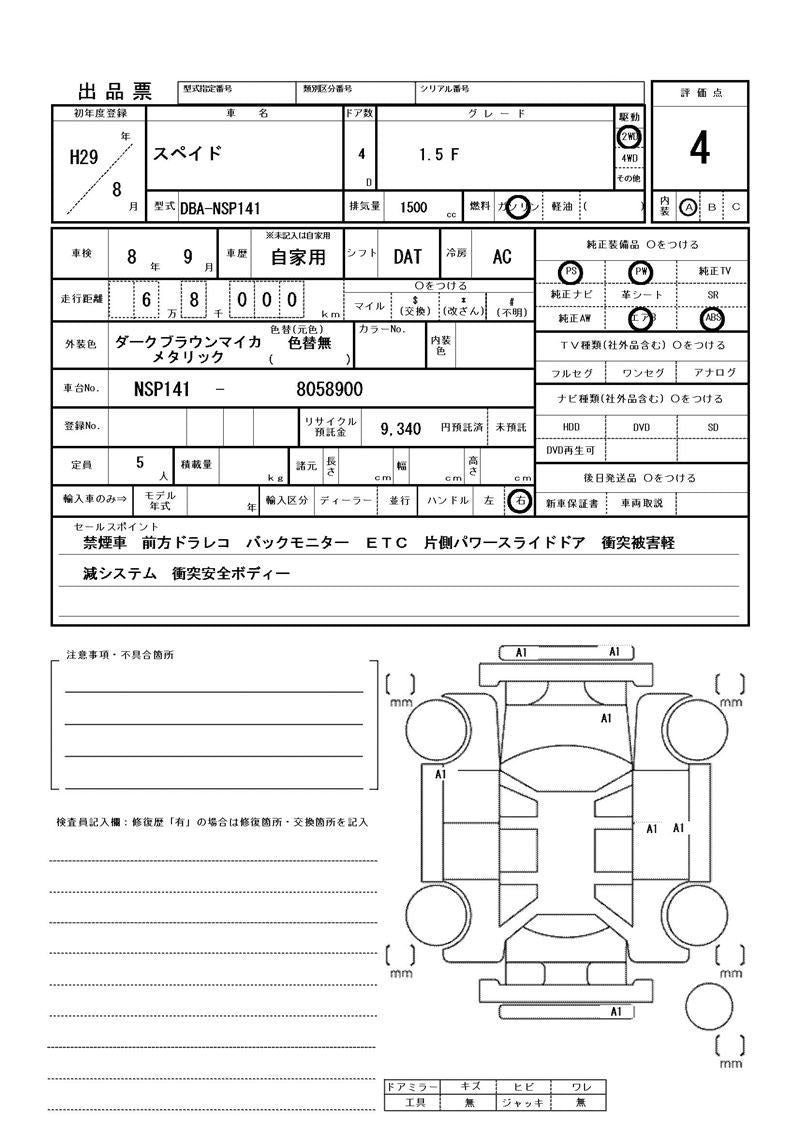 出品票
型式指定番号 類別区分番号 シリアル番号
評価点
初年度登録 車名 ドア数 グレード 駆動
H29 年 8 月
スペイド
4 D
1.5 F
2WD
4WD
その他
4
型式 DBA-NSP141 排気量 1500 cc 燃料 ガソリン 軽油 ( )
内装 A B C
車検 8 年 9 月 車歴 ※未記入は自家用 自家用 シフト DAT 冷房 AC
純正装備品 〇をつける
PS PW 純正TV
純正ナビ 革シート SR
純正AW エアB ABS
走行距離 6 万 8 千 0 0 0 km
〇をつける
マイル $ (交換) * (改ざん) # (不明)
TV種類(社外品含む) 〇をつける
フルセグ ワンセグ アナログ
外装色 ダークブラウンマイカメタリック
色替(元色) 色替無
( )
カラーNo. 内装色
車台No. NSP141 - 8058900
ナビ種類(社外品含む) 〇をつける
HDD DVD SD
DVD再生可
登録No. リサイクル預託金 9,340 円預託済 未預託
定員 5 人 積載量 kg 諸元 長さ cm 幅 cm 高さ cm
後日発送品 〇をつける
新車保証書 車両取説
輸入車のみ⇒ モデル年式 年 輸入区分 ディーラー 並行 ハンドル 左 右
セールスポイント
禁煙車 前方ドラレコ バックモニター ETC 片側パワースライドドア 衝突被害軽
減システム 衝突安全ボディー
注意事項・不具合箇所
検査員記入欄：修復歴「有」の場合は修復箇所・交換箇所を記入
A1 A1
mm mm
A1
A1
A1 A1
mm mm
A1
mm
ドアミラー キズ ヒビ ワレ
工具 無 ジャッキ 無